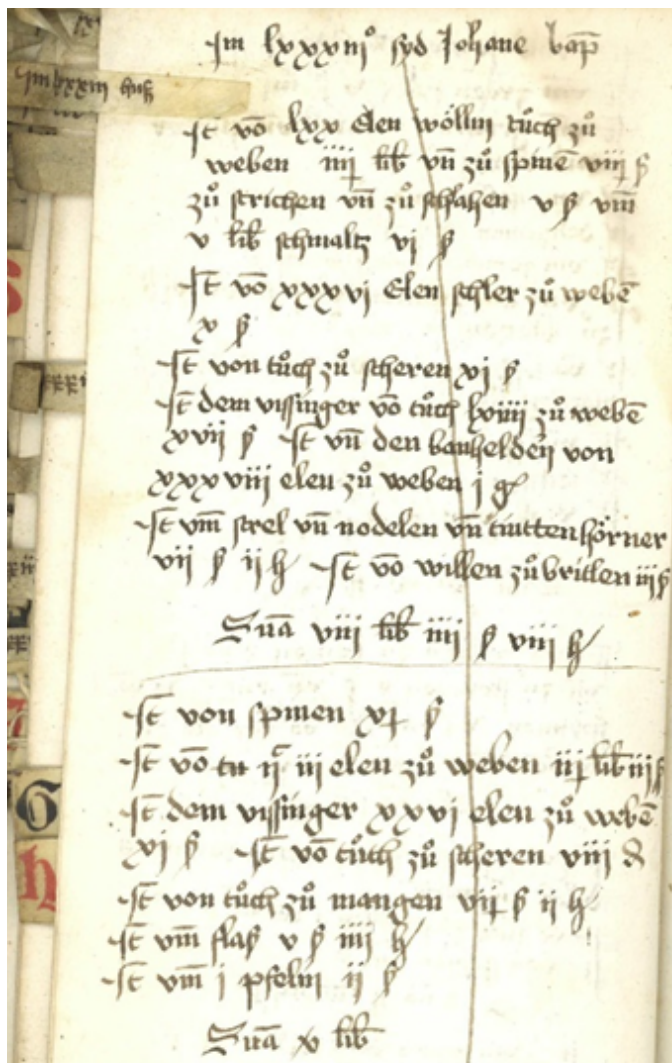 Im lxxxiii° syd Johane bap̄
Im lxxxiii
It vō lxx Elen wöllin tůch zů
weben iiij lib vn̄ zů spinē viij ß
zů strichen vn̄ zů schlahen v ß vm̄
v lib schmaltz vj ß
It vō xxxvj Elen schler zů webē
x ß
It von tůch zů scheren xj ß
It dem vissinger vō tůch lxiiii zů webē
xvii ß It vn̄ den von
xxxviii elen zů weben j g
It vm̄ strel vn̄ nodelen vn̄ hörner
vii ß ii h It vō willen zů britlen iii ß
Sūa viii lib iiii ß viii h
It von spinen xj ß
It vō iii elen zů weben iij lib iii ß
It dem vissinger xxvj elen zů webē
xj ß It vō tůch zů scheren viii d
It von tůch zů mangen vij ß ij h
It vm̄ flaß v ß iiii h
It vm̄ i pfelin ii ß
Sūa x lib
G
h